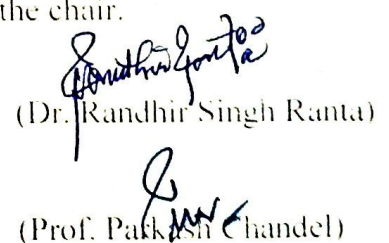 the chair.
(Dr. Randhir Singh Ranta)
(Prof. Parkash Chandel)